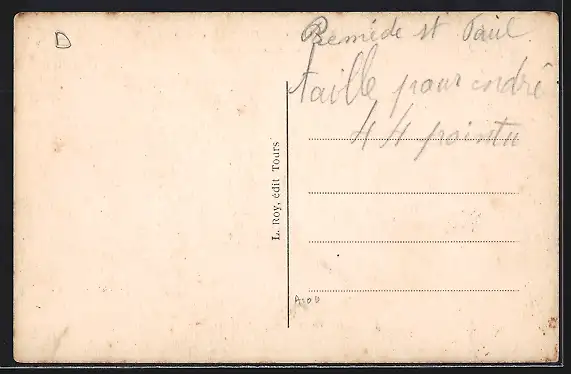 D
Remède st Paul
taille pour
44 pointu
L. Roy, édit Tours